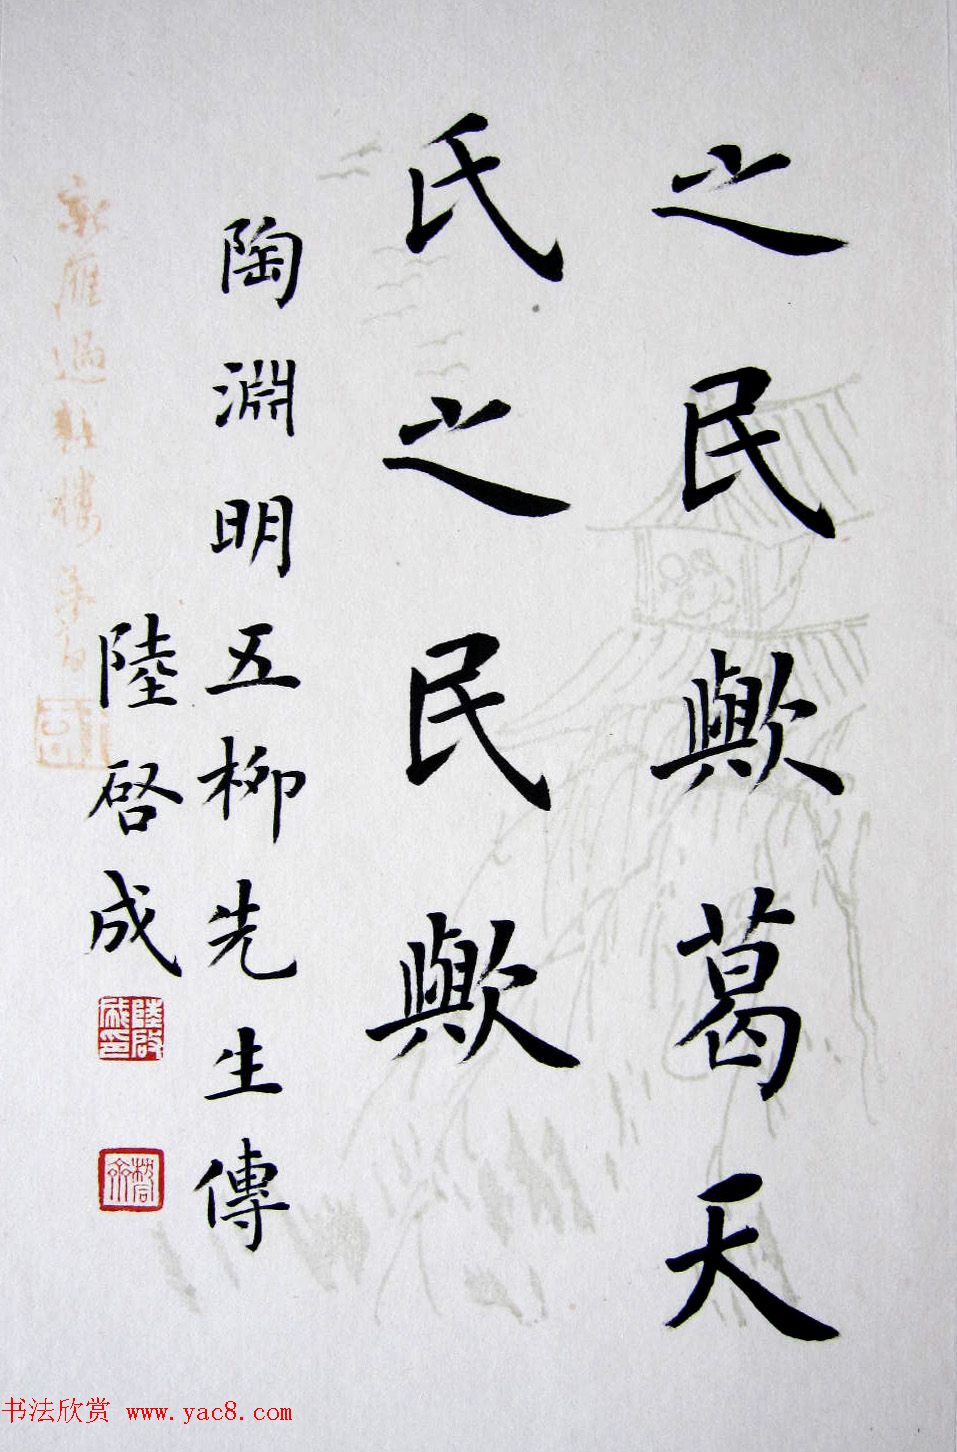 之民歟葛天
氏之民歟
陶淵明五柳先生傳
陸啓成
陸啓成印
书法欣赏 www.yac8.com